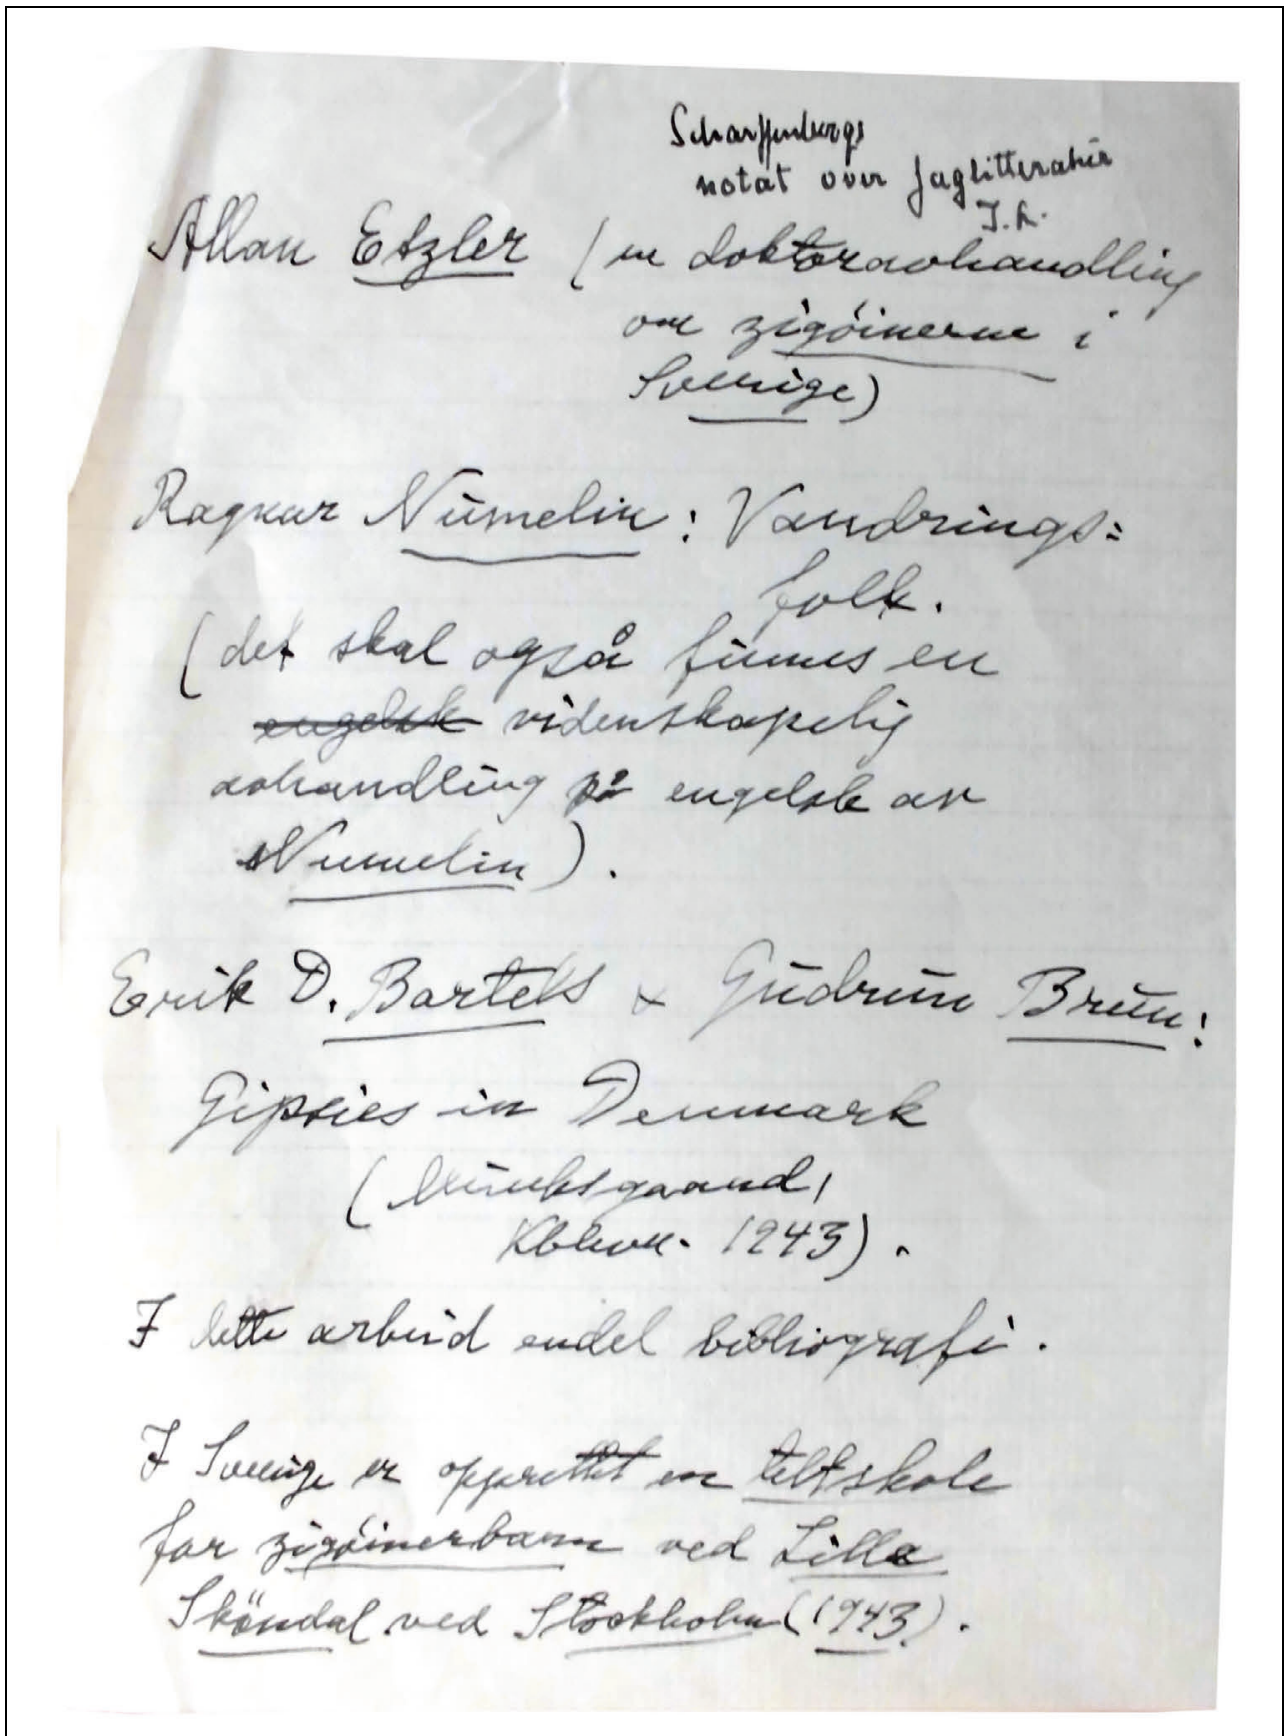 Scharffenbergs
notat over faglitteratur
J.S.
Allan Etzler (en doktoravhandling
om zigøinerne i
Sverige)
Ragnar Numelin: Vandrings=
folk.
(det skal også finnes en
engelsk videnskapelig
avhandling på engelsk av
Numelin).
Erik D. Bartels & Gudrun Brun:
Gipsies in Denmark
(Munksgaard,
Kbhvn. 1943).
I dette arbeid endel bibliografi.
I Sverige er opprettet en teltskole
for zigøinerbarn ved Lilla
Sköndal ved Stockholm (1943).